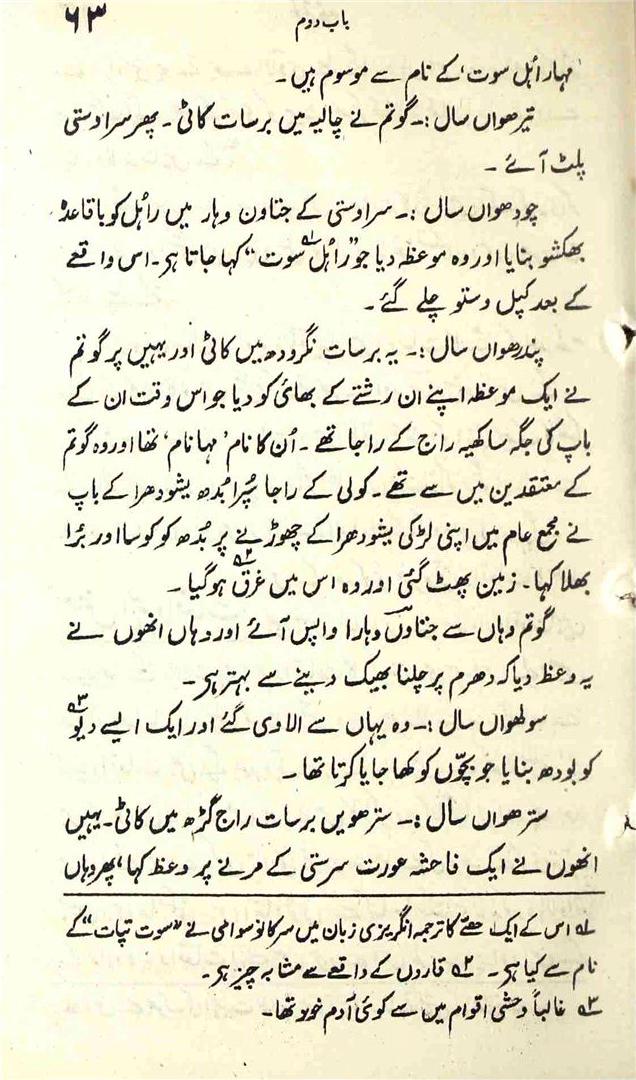 باب دوم
۶۳
مہار اہل سوت‘ کے نام سے موسوم ہیں۔
تیرھواں سال :۔ گوتم نے چالیہ میں برسات کاٹی۔ پھر سراوستی
پلٹ آئے۔
چودھواں سال :۔ سراوستی کے جتاون وہار میں راہل کو باقاعدہ
بھکشو بنایا اور وہ موعظہ دیا جو ”راہل سوت“ ؎۱ کہا جاتا ہر۔ اس واقعے
کے بعد کپل وستو چلے گئے۔
پندرھواں سال :۔ یہ برسات نگرودھ میں کاٹی اور یہیں پر گوتم
نے ایک موعظہ اپنے ان رشتے کے بھائی کو دیا جو اس وقت ان کے
باپ کی جگہ ساکھیہ راج کے راجا تھے۔ اُن کا نام ’مہانام‘ تھا اور وہ گوتم
کے معتقدین میں سے تھے۔ کولی کے راجا سُپرا بُدھ یشودھرا کے باپ
نے مجمع عام میں اپنی لڑکی یشودھرا کے چھوڑنے پر بُدھ کو کوسا اور بُرا
بھلا کہا۔ زمین پھٹ گئی اور وہ اس میں غرق ؎۲ ہوگیا۔
گوتم وہاں سے جتاون وہارا واپس آئے اور وہاں انھوں نے
یہ وعظ دیا کہ دھرم پر چلنا بھیک دینے سے بہتر ہر۔
سولھواں سال :۔ وہ یہاں سے الاوی گئے اور ایک ایسے دیو ؎۳
کو بودھ بنایا جو بچّوں کو کھا جایا کرتا تھا۔
سترھواں سال :۔ سترھویں برسات راج گڑھ میں کاٹی۔ یہیں
انھوں نے ایک فاحشہ عورت سرستی کے مرنے پر وعظ کہا، پھر وہاں
؎۱ اس کے ایک حصّے کا ترجمہ انگریزی زبان میں سرکانو سوامی نے ”سوت نپات“ کے
نام سے کیا ہر۔ ؎۲ قاروں کے واقعے سے مشابہ چیز ہر۔
؎۳ غالباً وحشی اقوام میں سے کوئی آدم خور تھا۔